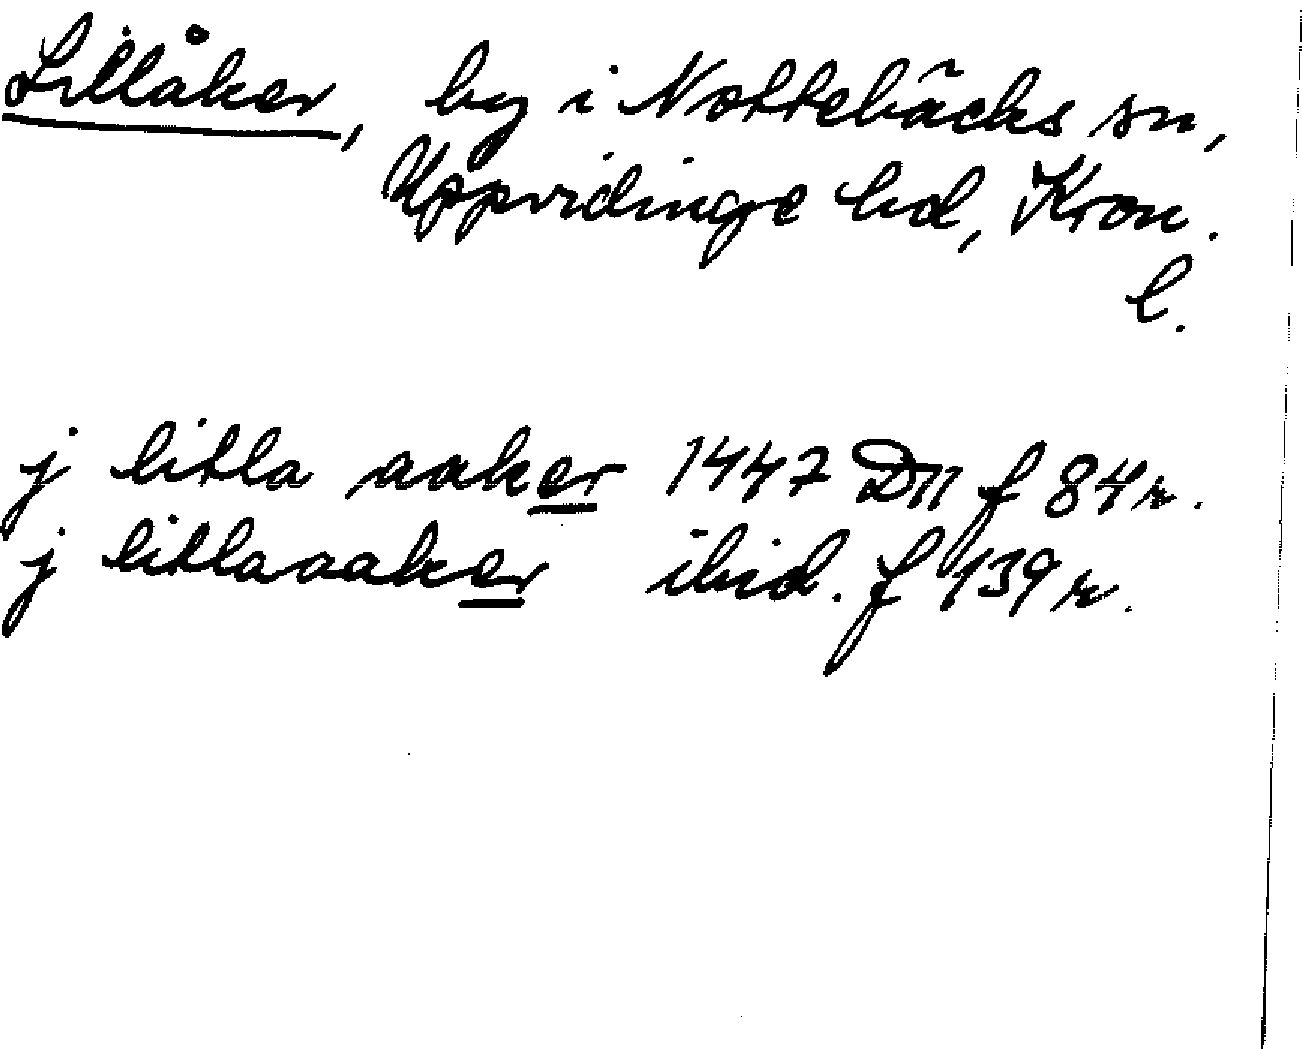 Lillåker, by i Nottebäcks sn,
Uppvidinge hd, Kron.
l.
j litla aaker 1447 D11 f 84 r.
j litlaaaker ibid. f 139 r.